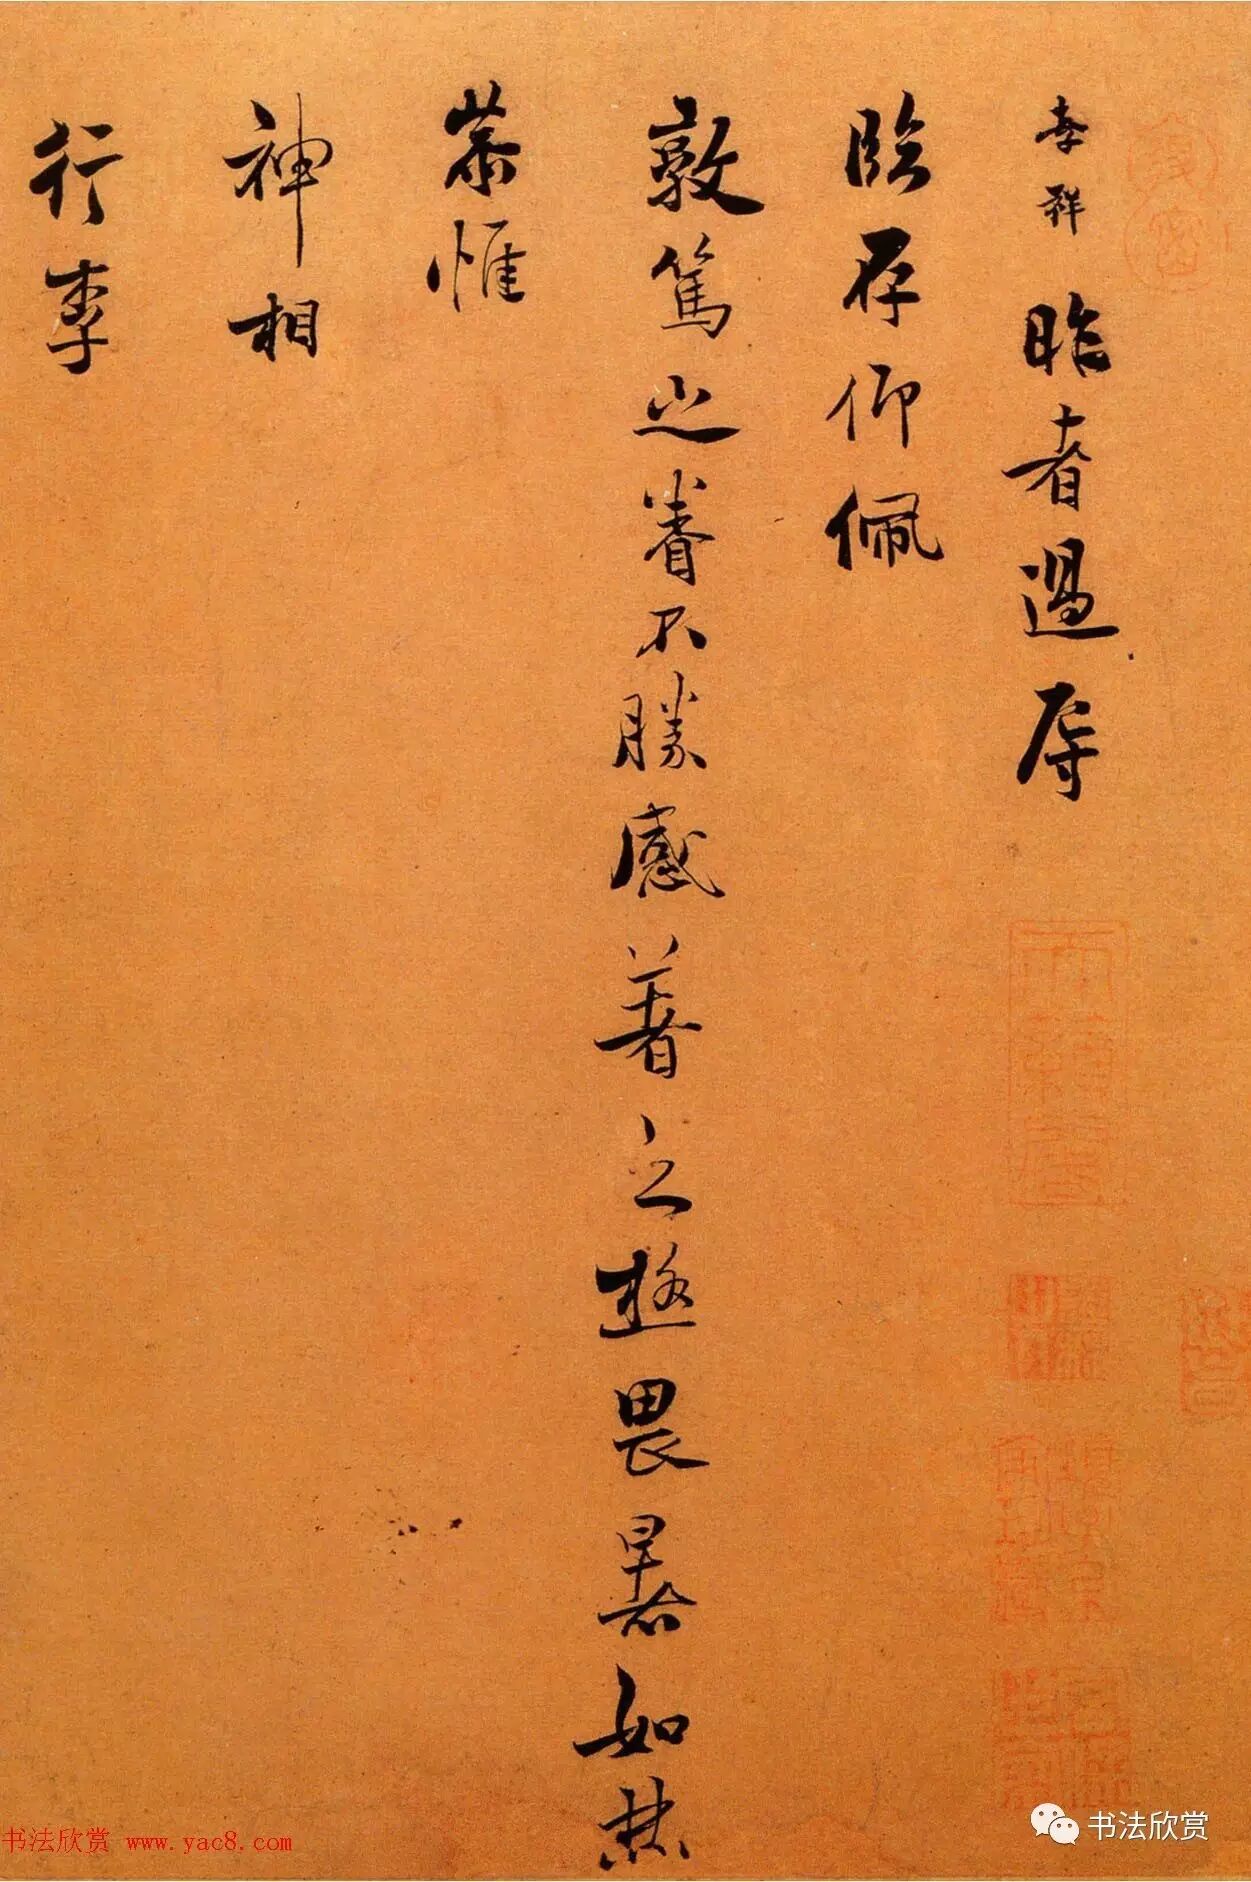 孝祥昨者過辱
臨存仰佩
敦篤之眷不勝感著之極畏暑如焚
恭惟
神相
行李
书法欣赏 www.yac8.com
书法欣赏